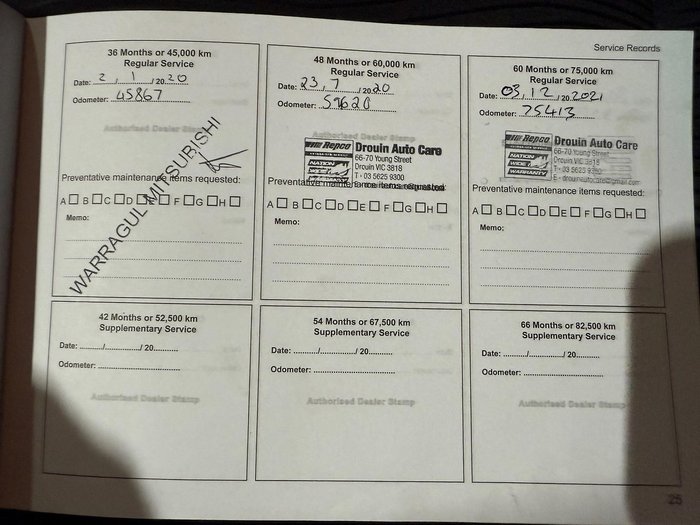 Service Records
36 Months or 45,000 km
Regular Service
Date: 2 / 1 / 20 20
Odometer: 45867
Authorised Dealer Stamp
WARRAGUL MITSUBISHI
Preventative maintenance items requested:
A B C D E F G H
Memo:
48 Months or 60,000 km
Regular Service
Date: 23, 7 / 20 20
Odometer:
Authorised Dealer Stamp
Repco
NATION
WIDE
WARRANTY
Drouin Auto Care
66-70 Young Street
Drouin VIC 3818
T - 03 5625 9300
Preventative maintenance items requested:
A B C D E F G H
Memo:
60 Months or 75,000 km
Regular Service
Date: 03, 12 / 20 2021
Odometer: 75413
Repco
NATION
WIDE
WARRANTY
Drouin Auto Care
66-70 Young Street
Drouin VIC 3818
T - 03 5623
E - drouinautocare@gmail.com
Preventative maintenance items requested:
A B C D E F G H
Memo:
42 Months or 52,500 km
Supplementary Service
Date: / / 20
Odometer:
54 Months or 67,500 km
Supplementary Service
Date: / / 20
Odometer:
Authorised Dealer Stamp
66 Months or 82,500 km
Supplementary Service
Date: / / 20
Odometer:
Authorised Dealer Stamp
Authorised Dealer Stamp
25